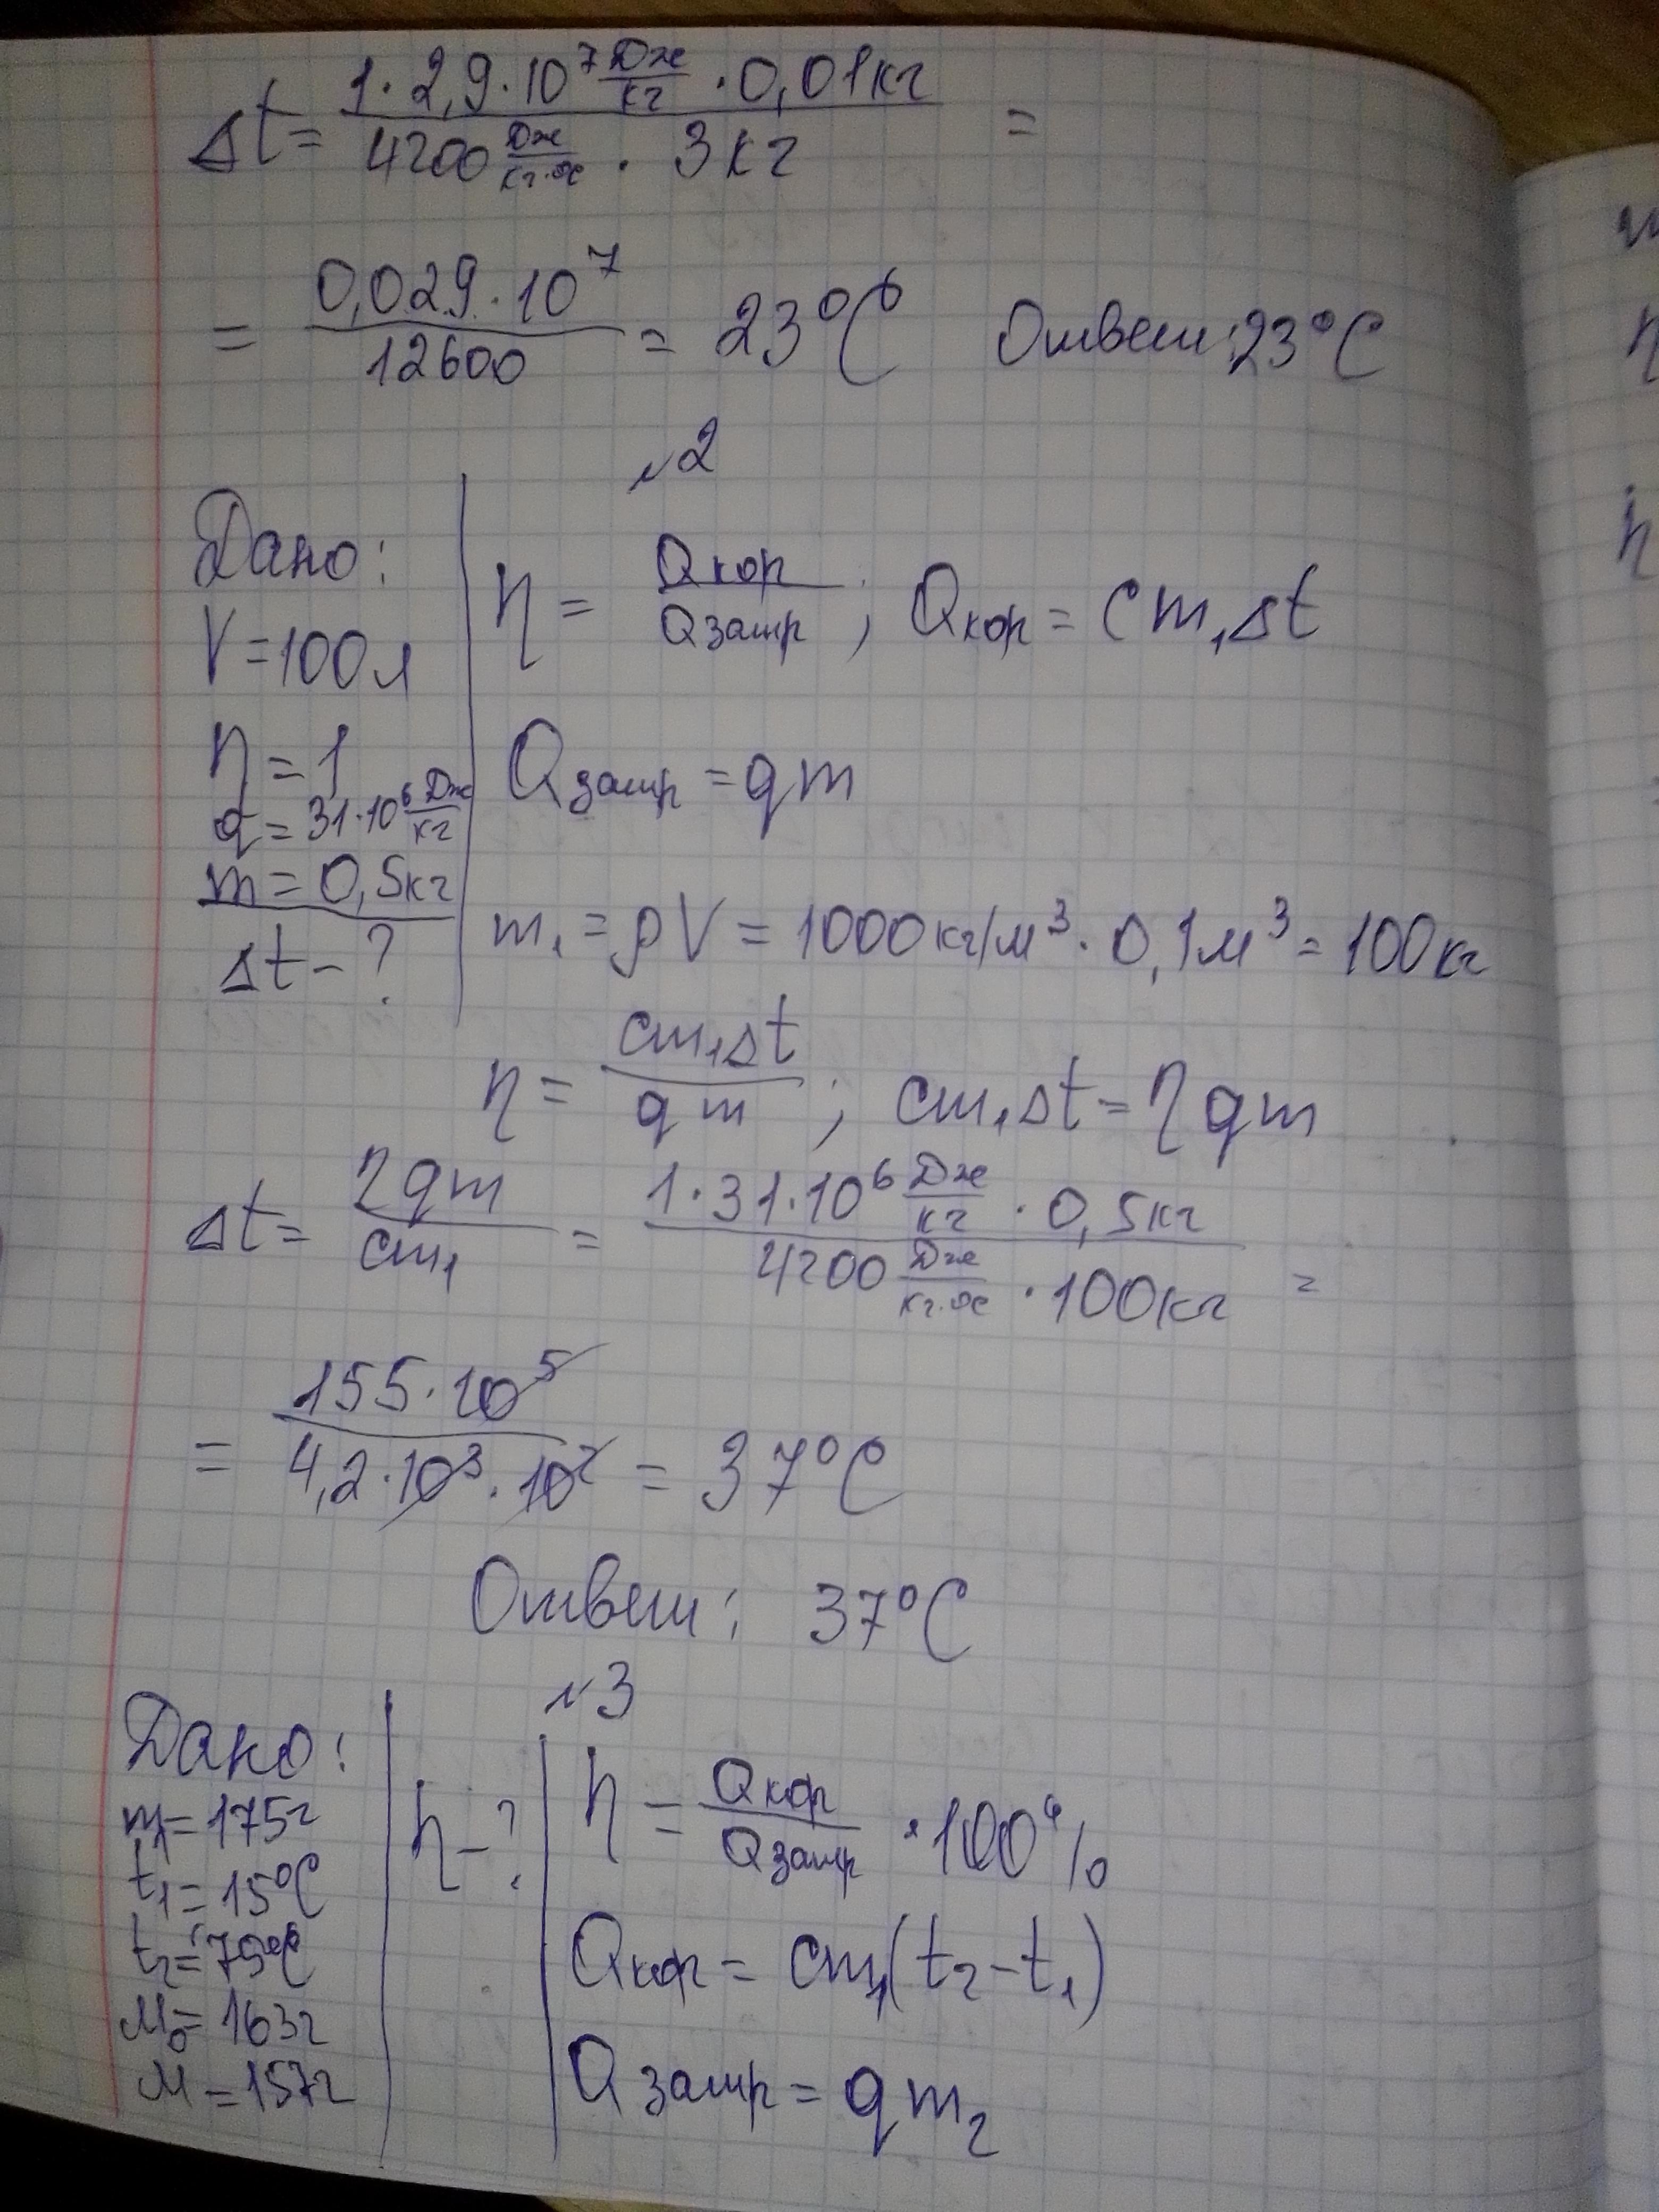 Δt = 1·2,9·10⁷ Дж/кг · 0,01кг / 4200 Дж/кг·°С · 3кг =
= 0,029·10⁷ / 12600 = 23°С Ответ: 23°С
№2
Дано:
V = 100л
η = 1
q = 31·10⁶ Дж/кг
m = 0,5кг
Δt - ?
η = Qкор / Qзатр ; Qкор = cm₁Δt
Qзатр = qm
m₁ = ρV = 1000кг/м³ · 0,1м³ = 100кг
η = cm₁Δt / qm ; cm₁Δt = ηqm
Δt = ηqm / cm₁ = 1·31·10⁶ Дж/кг · 0,5кг / 4200 Дж/кг·°С · 100кг =
= 155·10⁵ / 4,2·10³·10² = 37°С
Ответ: 37°С
№3
Дано:
m₁ = 175г
t₁ = 15°С
t₂ = 75°С
M₀ = 163г
M = 157г
η - ?
η = Qкор / Qзатр · 100%
Qкор = cm₁(t₂ - t₁)
Qзатр = qm₂